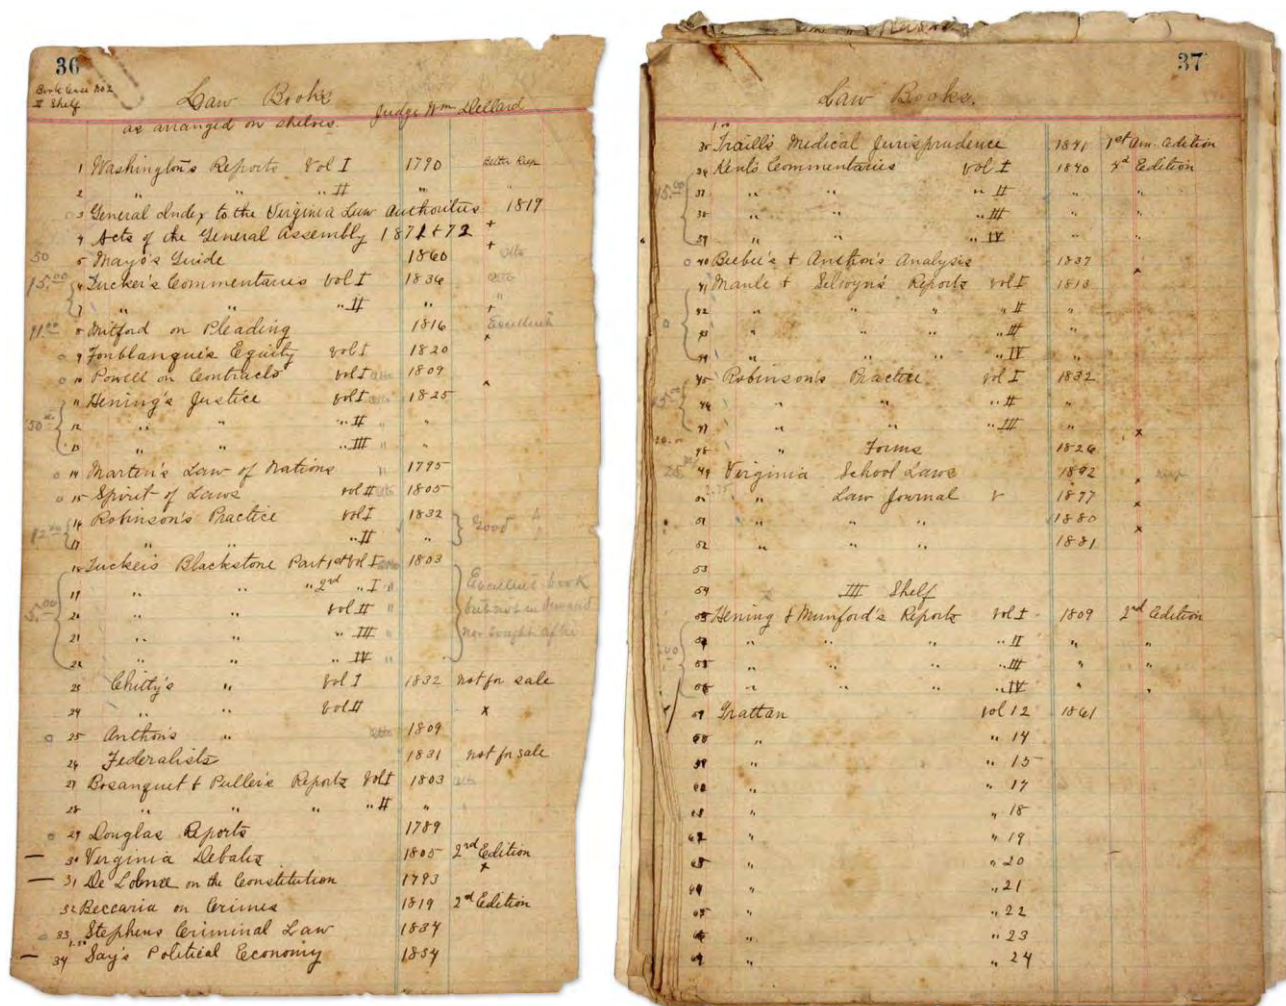 36
Book Case No 2
II Shelf
Law Books
as arranged on shelves. Judge Wm Dillard
1 Washington's Reports Vol I 1790
2 " " " II " "
3 General Index to the Virginia Law Authorities 1819
4 Acts of the General Assembly 1871 & 72 +
50 5 Mayo's Guide 1860 +
15.00 6 Tucker's Commentaries Vol I 1836
7 " " " II " +
8 Mitford on Pleading 1816 Excellent
0 9 Fonblanque's Equity Vol I 1820 x
0 10 Powell on Contracts Vol I 1809
11 Hening's Justice Vol I 1825 x
12 " " " II "
13 " " " III " "
0 14 Marten's Law of Nations " 1795
0 15 Spirit of Laws Vol II 1805
16 Robinson's Practice Vol I 1832 Good
17 " " " II "
18 Tucker's Blackstone Part 1st Vol I 1803
19 " " " 2nd " I " Excellent book
20 " " Vol II " but not in demand
21 " " " III " nor sought after
22 " " " IV "
23 Chitty's " Vol I 1832 not for sale
24 " " Vol II x
0 25 Anthon's " 1809
26 Federalists 1831 not for sale
27 Bosanquet & Puller's Reports Vol I 1803
28 " " " " II "
0 29 Douglas Reports 1789
— 30 Virginia Debates 1805 2nd Edition
— 31 De Lolme on the Constitution 1793 x
32 Beccaria on Crimes 1819 2nd Edition
0 33 Stephens Criminal Law 1834
— 34 Say's Political Economy 1834
37
Law Books.
35 Traill's Medical Jurisprudence 1841 1st Am. Edition
36 Kent's Commentaries Vol I 1840 4th Edition
37 " " " II " "
38 " " " III " "
39 " " " IV " "
0 40 Bieber's & Anthon's Analysis 1837
41 Maule & Selwyn's Reports Vol I 1813 x
42 " " " " II "
43 " " " " III "
44 " " " " IV "
45 Robinson's Practice Vol I 1832
46 " " " II "
47 " " " III "
48 " Forms 1826 x
49 Virginia School Laws 1892
50 " Law Journal V 1877 x
51 " " " 1880
52 " " " 1881 x
53
54 III Shelf
Hening & Munford's Reports Vol I 1809 2nd Edition
" " " " II " "
" " " " III " "
" " " " IV " "
Grattan Vol 12 1861
" " 14
" " 15
" " 17
" " 18
" " 19
" " 20
" " 21
" " 22
" " 23
" " 24